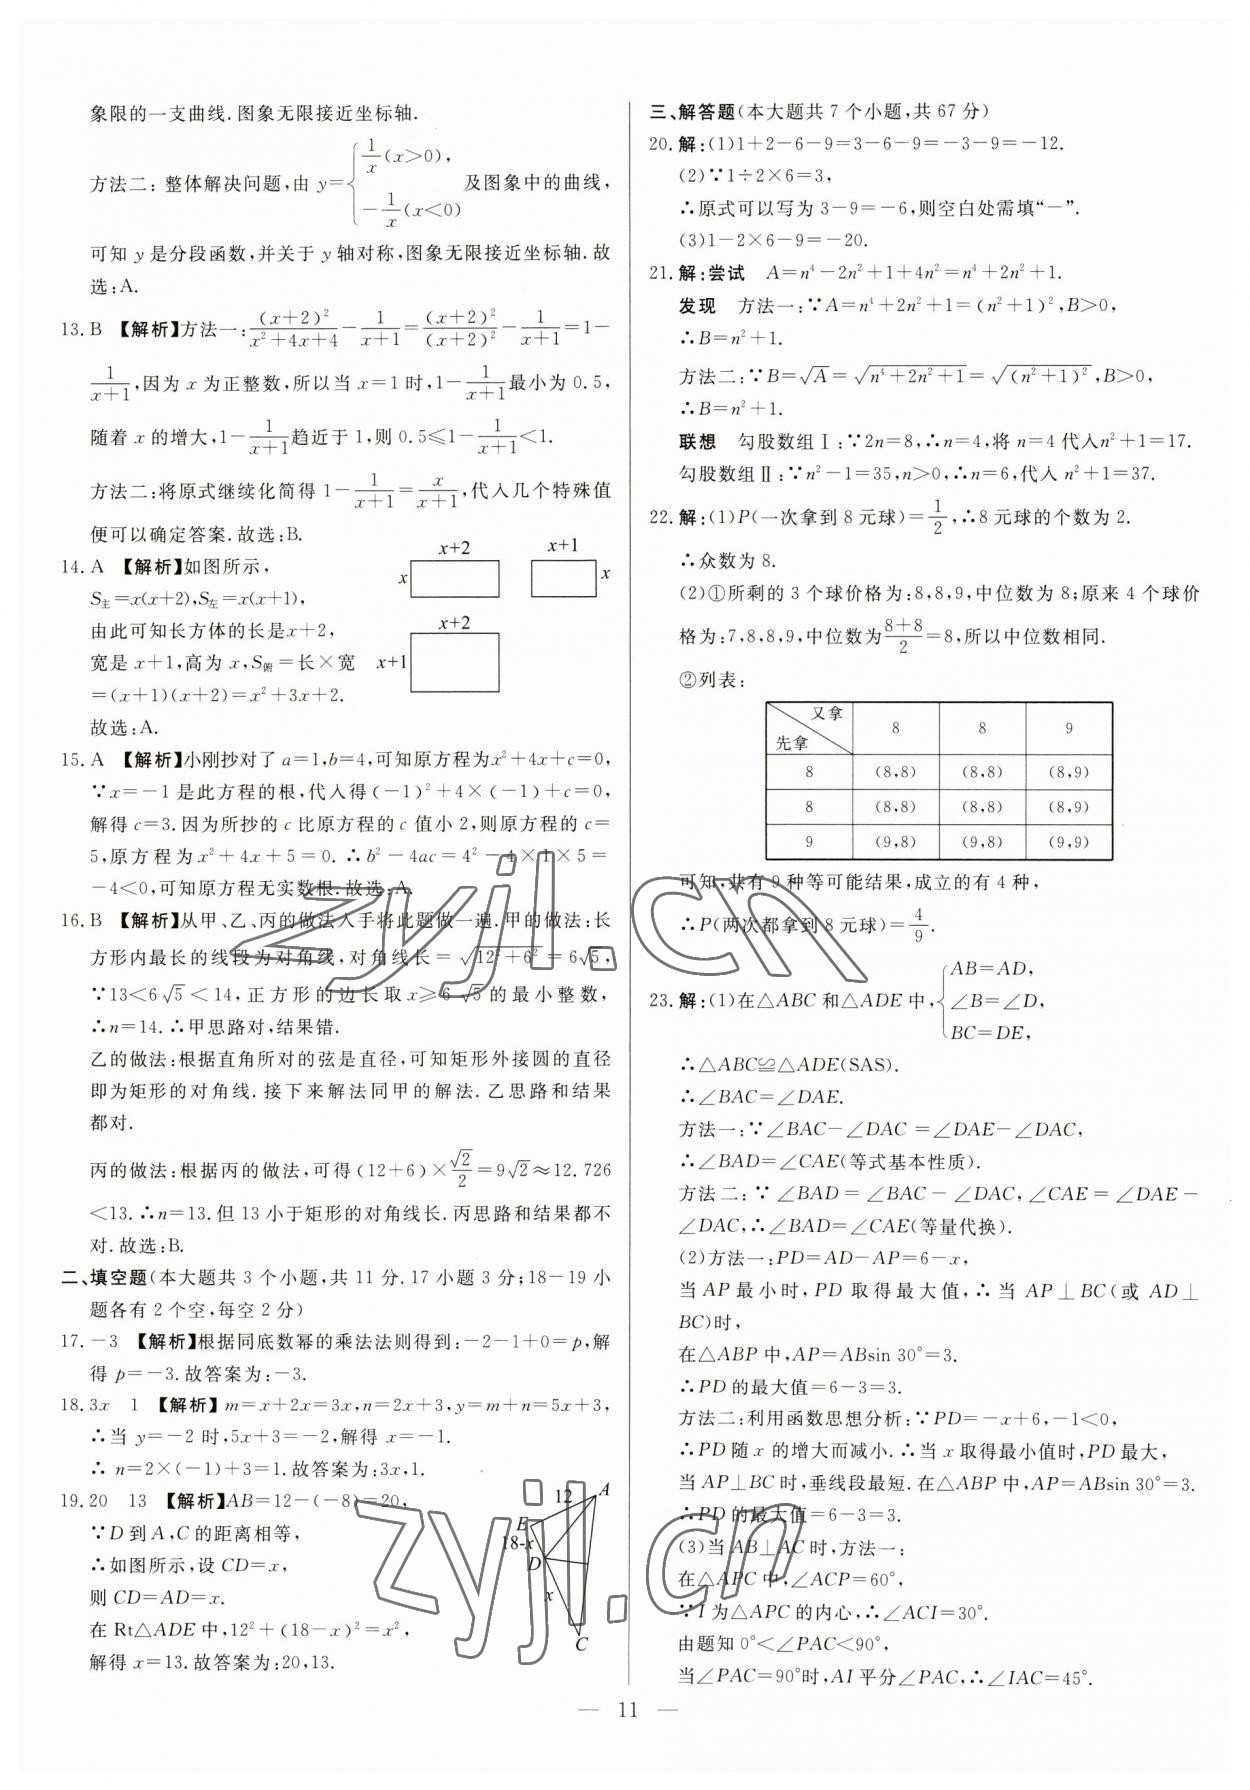 象限的一支曲线.图象无限接近坐标轴.
方法二:整体解决问题,由 y={1/x(x>0), -1/x(x<0) 及图象中的曲线,
可知 y 是分段函数,并关于 y 轴对称,图象无限接近坐标轴.故
选:A.
13.B 【解析】方法一:(x+2)²/(x²+4x+4)-1/(x+1)=(x+2)²/(x+2)²-1/(x+1)=1-
1/(x+1),因为 x 为正整数,所以当 x=1 时,1-1/(x+1)最小为 0.5,
随着 x 的增大,1-1/(x+1)趋近于 1,则 0.5≤1-1/(x+1)<1.
方法二:将原式继续化简得 1-1/(x+1)=x/(x+1),代入几个特殊值
便可以确定答案.故选:B.
14.A 【解析】如图所示,
S主=x(x+2),S左=x(x+1),
由此可知长方体的长是 x+2,
宽是 x+1,高为 x,S俯=长×宽
=(x+1)(x+2)=x²+3x+2.
故选:A.
x+2
x+1
x
x
x+2
x+1
15.A 【解析】小刚抄对了 a=1,b=4,可知原方程为x²+4x+c=0,
∵x=-1 是此方程的根,代入得(-1)²+4×(-1)+c=0,
解得 c=3.因为所抄的 c 比原方程的 c 值小 2,则原方程的 c=
5,原方程为 x²+4x+5=0.∴b²-4ac=4²-4×1×5=
-4<0,可知原方程无实数根.故选:A.
16.B 【解析】从甲、乙、丙的做法入手将此题做一遍.甲的做法:长
方形内最长的线段为对角线,对角线长=√(12²+6²)=6√5,
∵13<6√5<14,正方形的边长取 x≥6√5的最小整数,
∴n=14.∴甲思路对,结果错.
乙的做法:根据直角所对的弦是直径,可知矩形外接圆的直径
即为矩形的对角线.接下来解法同甲的解法.乙思路和结果
都对.
丙的做法:根据丙的做法,可得(12+6)×√2/2=9√2≈12.726
<13.∴n=13.但 13 小于矩形的对角线长.丙思路和结果都不
对.故选:B.
二、填空题(本大题共 3 个小题,共 11 分.17 小题 3 分;18-19 小
题各有 2 个空,每空 2 分)
17.-3 【解析】根据同底数幂的乘法法则得到:-2-1+0=p,解
得 p=-3.故答案为:-3.
18.3x 1 【解析】m=x+2x=3x,n=2x+3,y=m+n=5x+3,
∴当 y=-2 时,5x+3=-2,解得 x=-1.
∴ n=2×(-1)+3=1.故答案为:3x,1.
19.20 13 【解析】AB=12-(-8)=20,
∵D 到 A,C 的距离相等,
∴如图所示,设 CD=x,
则 CD=AD=x.
在 Rt△ADE 中,12²+(18-x)²=x²,
解得 x=13.故答案为:20,13.
12
A
E
18-x
D
x
C
三、解答题(本大题共 7 个小题,共 67 分)
20.解:(1)1+2-6-9=3-6-9=-3-9=-12.
(2)∵1÷2×6=3,
∴原式可以写为 3-9=-6,则空白处需填“-”.
(3)1-2×6-9=-20.
21.解:尝试 A=n⁴-2n²+1+4n²=n⁴+2n²+1.
发现 方法一:∵A=n⁴+2n²+1=(n²+1)²,B>0,
∴B=n²+1.
方法二:∵B=√A=√(n⁴+2n²+1)=√((n²+1)²),B>0,
∴B=n²+1.
联想 勾股数组Ⅰ:∵2n=8,∴n=4,将 n=4 代入n²+1=17.
勾股数组Ⅱ:∵n²-1=35,n>0,∴n=6,代入 n²+1=37.
22.解:(1)P(一次拿到 8 元球)=1/2,∴8 元球的个数为 2.
∴众数为 8.
(2)①所剩的 3 个球价格为:8,8,9,中位数为 8;原来 4 个球价
格为:7,8,8,9,中位数为(8+8)/2=8,所以中位数相同.
②列表:
又拿 先拿 8 8 9
8 (8,8) (8,8) (8,9)
8 (8,8) (8,8) (8,9)
9 (9,8) (9,8) (9,9)
可知,共有 9 种等可能结果,成立的有 4 种,
∴P(两次都拿到 8 元球)=4/9.
23.解:(1)在△ABC 和△ADE 中,{AB=AD, ∠B=∠D, BC=DE,
∴△ABC≌△ADE(SAS).
∴∠BAC=∠DAE.
方法一:∵∠BAC-∠DAC=∠DAE-∠DAC,
∴∠BAD=∠CAE(等式基本性质).
方法二:∵∠BAD=∠BAC-∠DAC,∠CAE=∠DAE-
∠DAC,∴∠BAD=∠CAE(等量代换).
(2)方法一:PD=AD-AP=6-x,
当 AP 最小时,PD 取得最大值,∴当 AP⊥BC(或 AD⊥
BC)时,
在△ABP 中,AP=ABsin 30°=3.
∴PD 的最大值=6-3=3.
方法二:利用函数思想分析:∵PD=-x+6,-1<0,
∴PD 随 x 的增大而减小.∴当 x 取得最小值时,PD 最大,
当 AP⊥BC 时,垂线段最短.在△ABP 中,AP=ABsin 30°=3.
∴PD 的最大值=6-3=3.
(3)当 AB⊥AC 时,方法一:
在△APC 中,∠ACP=60°,
∵I 为△APC 的内心,∴∠ACI=30°.
由题知 0°<∠PAC<90°,
当∠PAC=90°时,AI 平分∠PAC,∴∠IAC=45°.
— 11 —
zyjl.cn
zyjl.cn